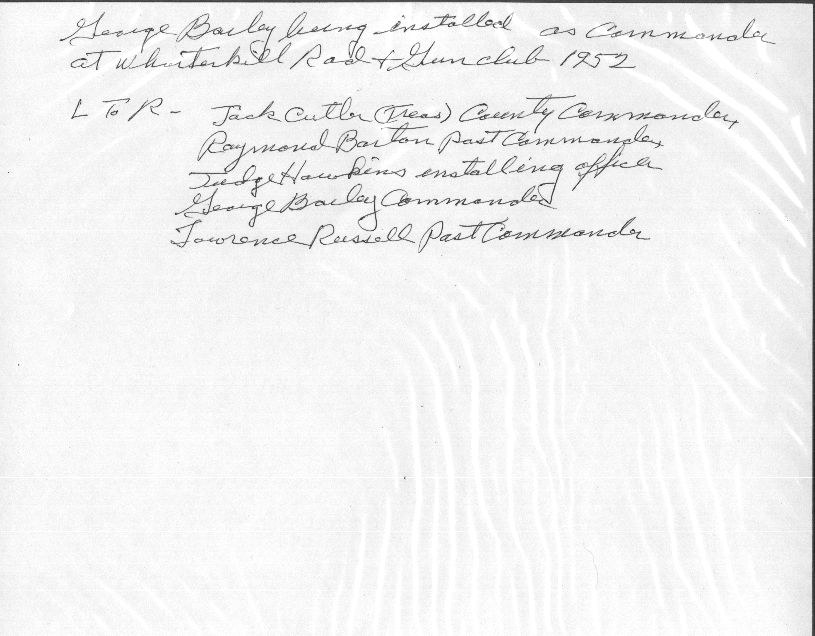 George Bailey being installed as Commander
at Whorterkill Rod + Gun club 1952
L To R - Jack Cutler (Treas) County Commander,
Raymond Barton Past Commander,
Judge Hawkins installing officer
George Bailey Commander
Lawrence Russell Past Commander